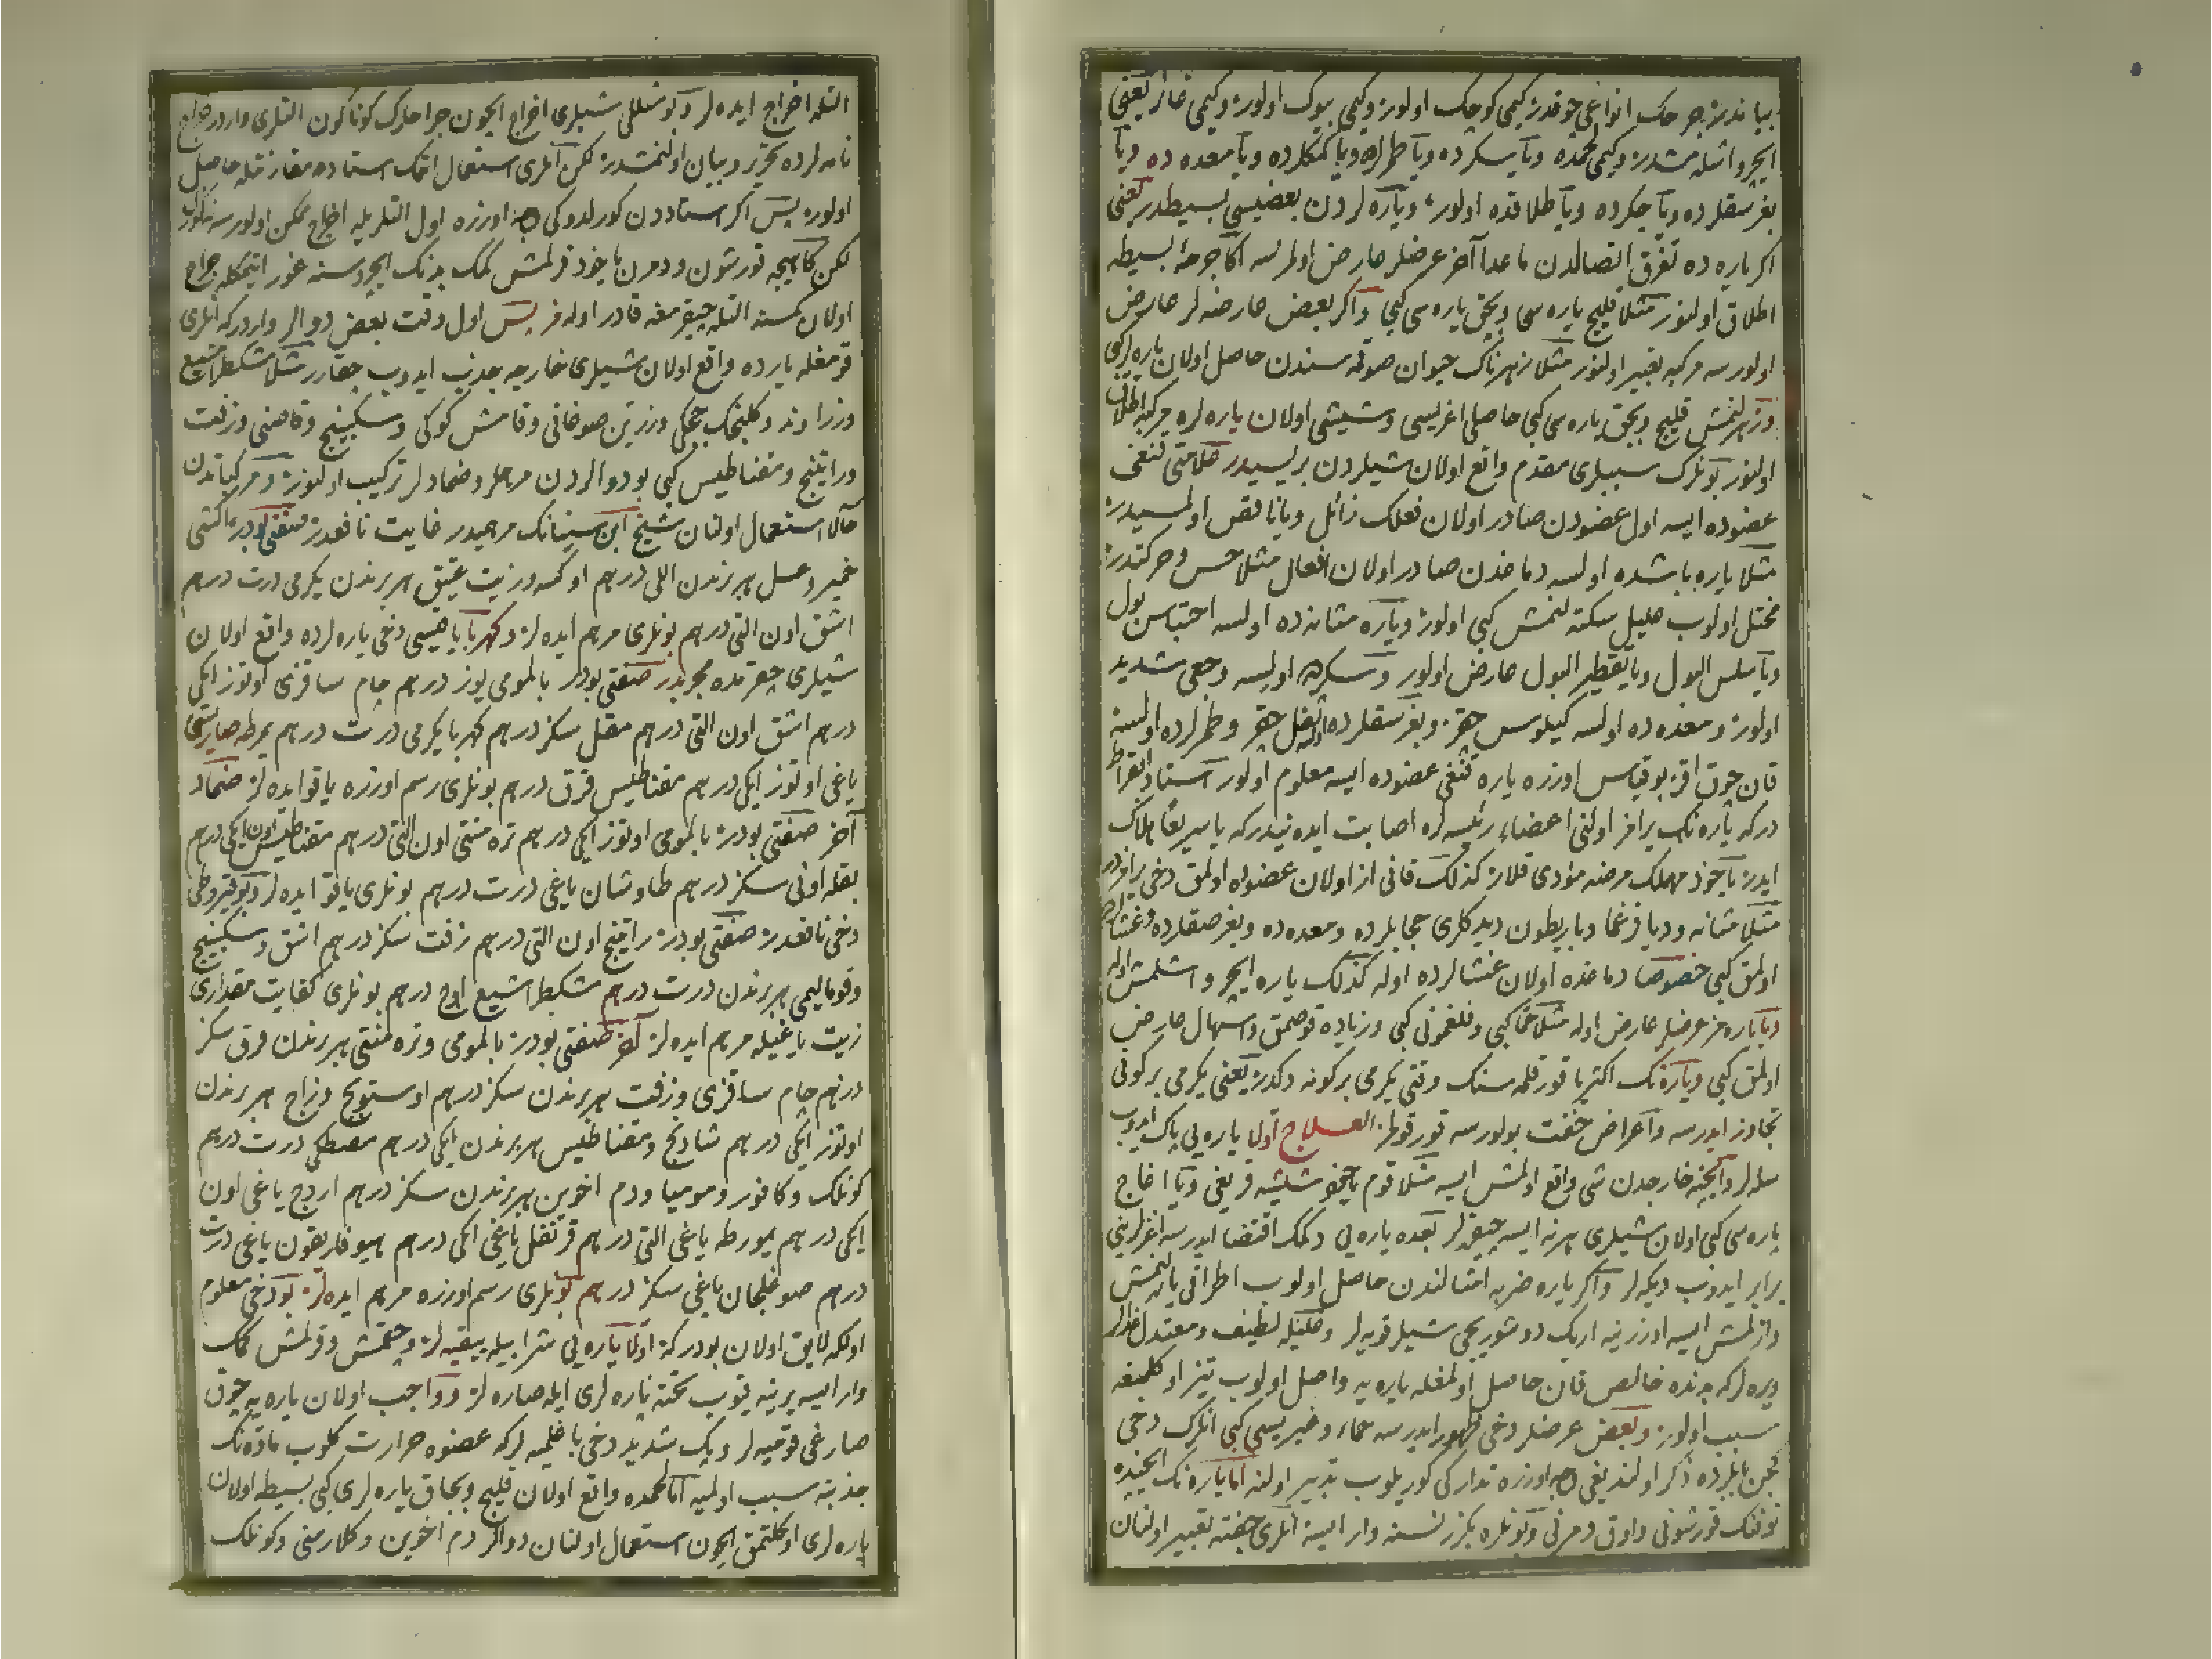 بیاندر جرحک انواعی چوقدر کیمی کوچک اولور و کیمی بیوک اولور و کیمی غائر یعنی
ایچرو اشلمشدر و کیمی لحمده ویا سکرده ویا طمرلرده ویا کمکلرده ویا معده ده ویا
بغرسقلرده ویا جکرده ویا طلاقده اولور ویاره لردن بعضیسی بسیطدر یعنی
اکر یاره ده تفرق اتصالدن ماعدا آخر عرضلر عارض اولمزسه اکا جرحهٔ بسیطه
اطلاق اولنور مثلا قلیج یاره سی وبچق یاره سی کبی واکر بعض عارضه لر عارض
اولورسه مرکبه تعبیر اولنور مثلا زهرناک حیوان صوقمه سندن حاصل اولان یاره لر کبی
وزهرلنمش قلیج وبچق یاره سی کبی حاصلی اغریسی وشیشی اولان یاره لره مرکبه اطلاق
اولنور بونلرک سببلری مقدم واقع اولان شیلردن بریسیدر علامتی قنغی
عضوده ایسه اول عضودن صادر اولان فعلک زائل ویا ناقص اولمسیدر
مثلا یاره باشده اولسه دماغدن صادر اولان افعال مثلا حس وحرکتدر
مختل اولوب علیل سکته لنمش کبی اولور ویاره مثانه ده اولسه احتباس بول
ویا سلس البول ویا تقطیر البول عارض اولور وسکرده اولسه وجعی شدید
اولور ومعده ده اولسه کیلوس چقر وبغرسقلرده اولسه ثفل چقر وطمرلرده اولسه
قان چوق اقر بو قیاس اوزره یاره قنغی عضوده ایسه معلوم اولور استاد ابقراط
درکه یاره نک یرامز اولنی اعضاء رئیسه لره اصابت ایدنیدرکه یا سریعا هلاک
ایدر یاخود مهلک مرضه مؤدی قلار کذلک قانی از اولان عضوده اولمق دخی یرامزدر
مثلا مثانه ودیافرغما وباریطون دیدکلری حجابلرده ومعده ده وبغرصقلرده وغشالرده
اولمق کبی خصوصا دماغده اولان غشالرده اوله کذلک یاره ایچرو اشلمش اوله
ویا یرامز عرضلر عارض اوله مثلا حما کبی وفلغمونی کبی وزیاده قوصمق واسهال عارض
اولمق کبی ویاره نک اکثریا قورقلمه سنک وقتی یکرمی بر کونه دکدر یعنی یکرمی بر کونی
تجاوز ایدرسه واعراض خفت بولورسه قورتولر العلاج اولا یاره یی پاک ایدوب
سله لر وایچنه خارجدن شی واقع اولمش ایسه مثلا قوم یاخود شیشه قریغی ویا اغاج
پاره سی کبی اولان شیلری هر نه ایسه چیقره لر بعده یاره یی دکمک اقتضا ایدرسه اغزلرینی
برابر ایدوب دیکه لر واکر یاره ضربه امثالندن حاصل اولوب اطرافی یارلمش
وازلمش ایسه اوزرینه ارک دوشوریجی شیلر قویه لر وعلیله لطیف ومعتدل غذالر
ویره لرکه بدنده خالص قان حاصل اولمغله یاره یه واصل اولوب تیز اوکلمغه
سبب اولور وبعض عرضلر دخی ظهور ایدرسه حماء وغیریسی کبی انلرک دخی
کچن بابلرده ذکر اولندیغی وجه اوزره تدارکی کوریلوب تدبیر اولنه اما یاره نک ایچنده
توفنک قورشونی واوق دمرنی وبونلره بکزر نسنه وار ایسه انلری جفته تعبیر اولنان
التله اخراج ایده لر وبو شکللی شیلری اخراج ایچون جراحلرک کوناکون التلری واردر جراح
نامه لرده تحریر وبیان اولنمشدر لکن انلری استعمال اتمک استادده مقارنتله حاصل
اولور پس اکر استاددن کورلدوکی وجه اوزره اول التلریله اخراج ممکن اولورسه نه کوزل
لکن کاهیجه قورشون ودمرن یاخود قرلمش کمک بدنک ایچروسنه غور ایتمکله جراح
اولان کمسنه التله چیقرمغه قادر اوله مز پس اول وقت بعض دوالر واردرکه انلری
قومغله یارده واقع اولان شیلری خارجه جذب ایدوب چقارر مثلا مشکطرامشیع
وزراوند وکلنجک چیچکی وزرین صوغانی وقامش کوکی وسکبینج وقاصنی وزفت
وراتینج ومقناطیس کبی بو دوالردن مرهملر وضمادلر ترکیب اولنور ومرکباتدن
حالا استعمال اولنان شیخ ابن سینانک مرهمیدر غایت نافعدر صنعتی بودر اکشی
خمیر وعسل هر برندن اللی درهم اوکسه وزیت عتیق هر برندن یکرمی درت درهم
اشق اون التی درهم بونلری مرهم ایده لر وکهربا یاقیسی دخی یاره لرده واقع اولان
شیلری چقرمده مجربدر صنعتی بودر بالمومی یوز درهم جام ساقزی اوتوز ایکی
درهم اشق اون التی درهم مقل سکز درهم کهربا یکرمی درت درهم یمرطه صاریسی
یاغی اوتوز ایکی درهم مقناطیس قرق درهم بونلری رسم اوزره یاقو ایده لر ضماد
آخر صنعتی بودر بالمومی اوتوز ایکی درهم تره منتی اون التی درهم مقناطیس اون ایکی درهم
بقله اونی سکز درهم طاوشان یاغی درت درهم بونلری یاقو ایده لر وبو قیروطی
دخی نافعدر صنعتی بودر راتینج اون التی درهم زفت سکز درهم اشق وسکبینج
وقومالیمی هر برندن درت درهم مشکطرامشیع اوچ درهم بونلری کفایت مقداری
زیت یاغیله مرهم ایده لر آخر صنعتی بودر بالمومی وتره منتی هر برندن قرق سکز
درهم جام ساقزی وزفت هر برندن سکز درهم اوستوبج وزاج هر برندن
اوتوز ایکی درهم شادنج ومقناطیس هر برندن ایکی درهم مصطکی درت درهم
کونلک وکافور ومومیا ودم اخوین هر برندن سکز درهم اردج یاغی اون
ایکی درهم یمورطه یاغی التی درهم قرنفل یاغی ایکی درهم هیوفاریقون یاغی درت
درهم صوغلجان یاغی سکز درهم بونلری رسم اوزره مرهم ایده لر بو دخی معلوم
اولکه لایق اولان بودرکه اولا یاره یی شرابیله ییقیه لر وچقمش وقرلمش کمک
وار ایسه یرینه قیوب تخته پاره لری ایله صاره لر وواجب اولان یاره یه چوق
صارغی قومیه لر وپک شدید دخی باغلمیه لرکه عضوه حرارت کلوب ماده نک
جذبنه سبب اولمیه اما لحمده واقع اولان قلیج وبجاق یاره لری کبی بسیطه اولان
یاره لری اوکلتمق ایچون استعمال اولنان دوالر دم اخوین وکلارمنی وکونلک